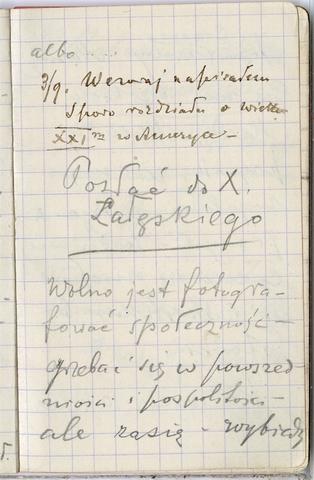 albo .....
3/9. Wczoraj napisałem
sporo rozdziału o wieku
XXI m w Ameryce –
Posłać do X.
Załęskiego
Wolno jest fotogra-
fować społeczność –
grzebać się w powszed-
niości i pospolitości –
ale zasię – wybiedz